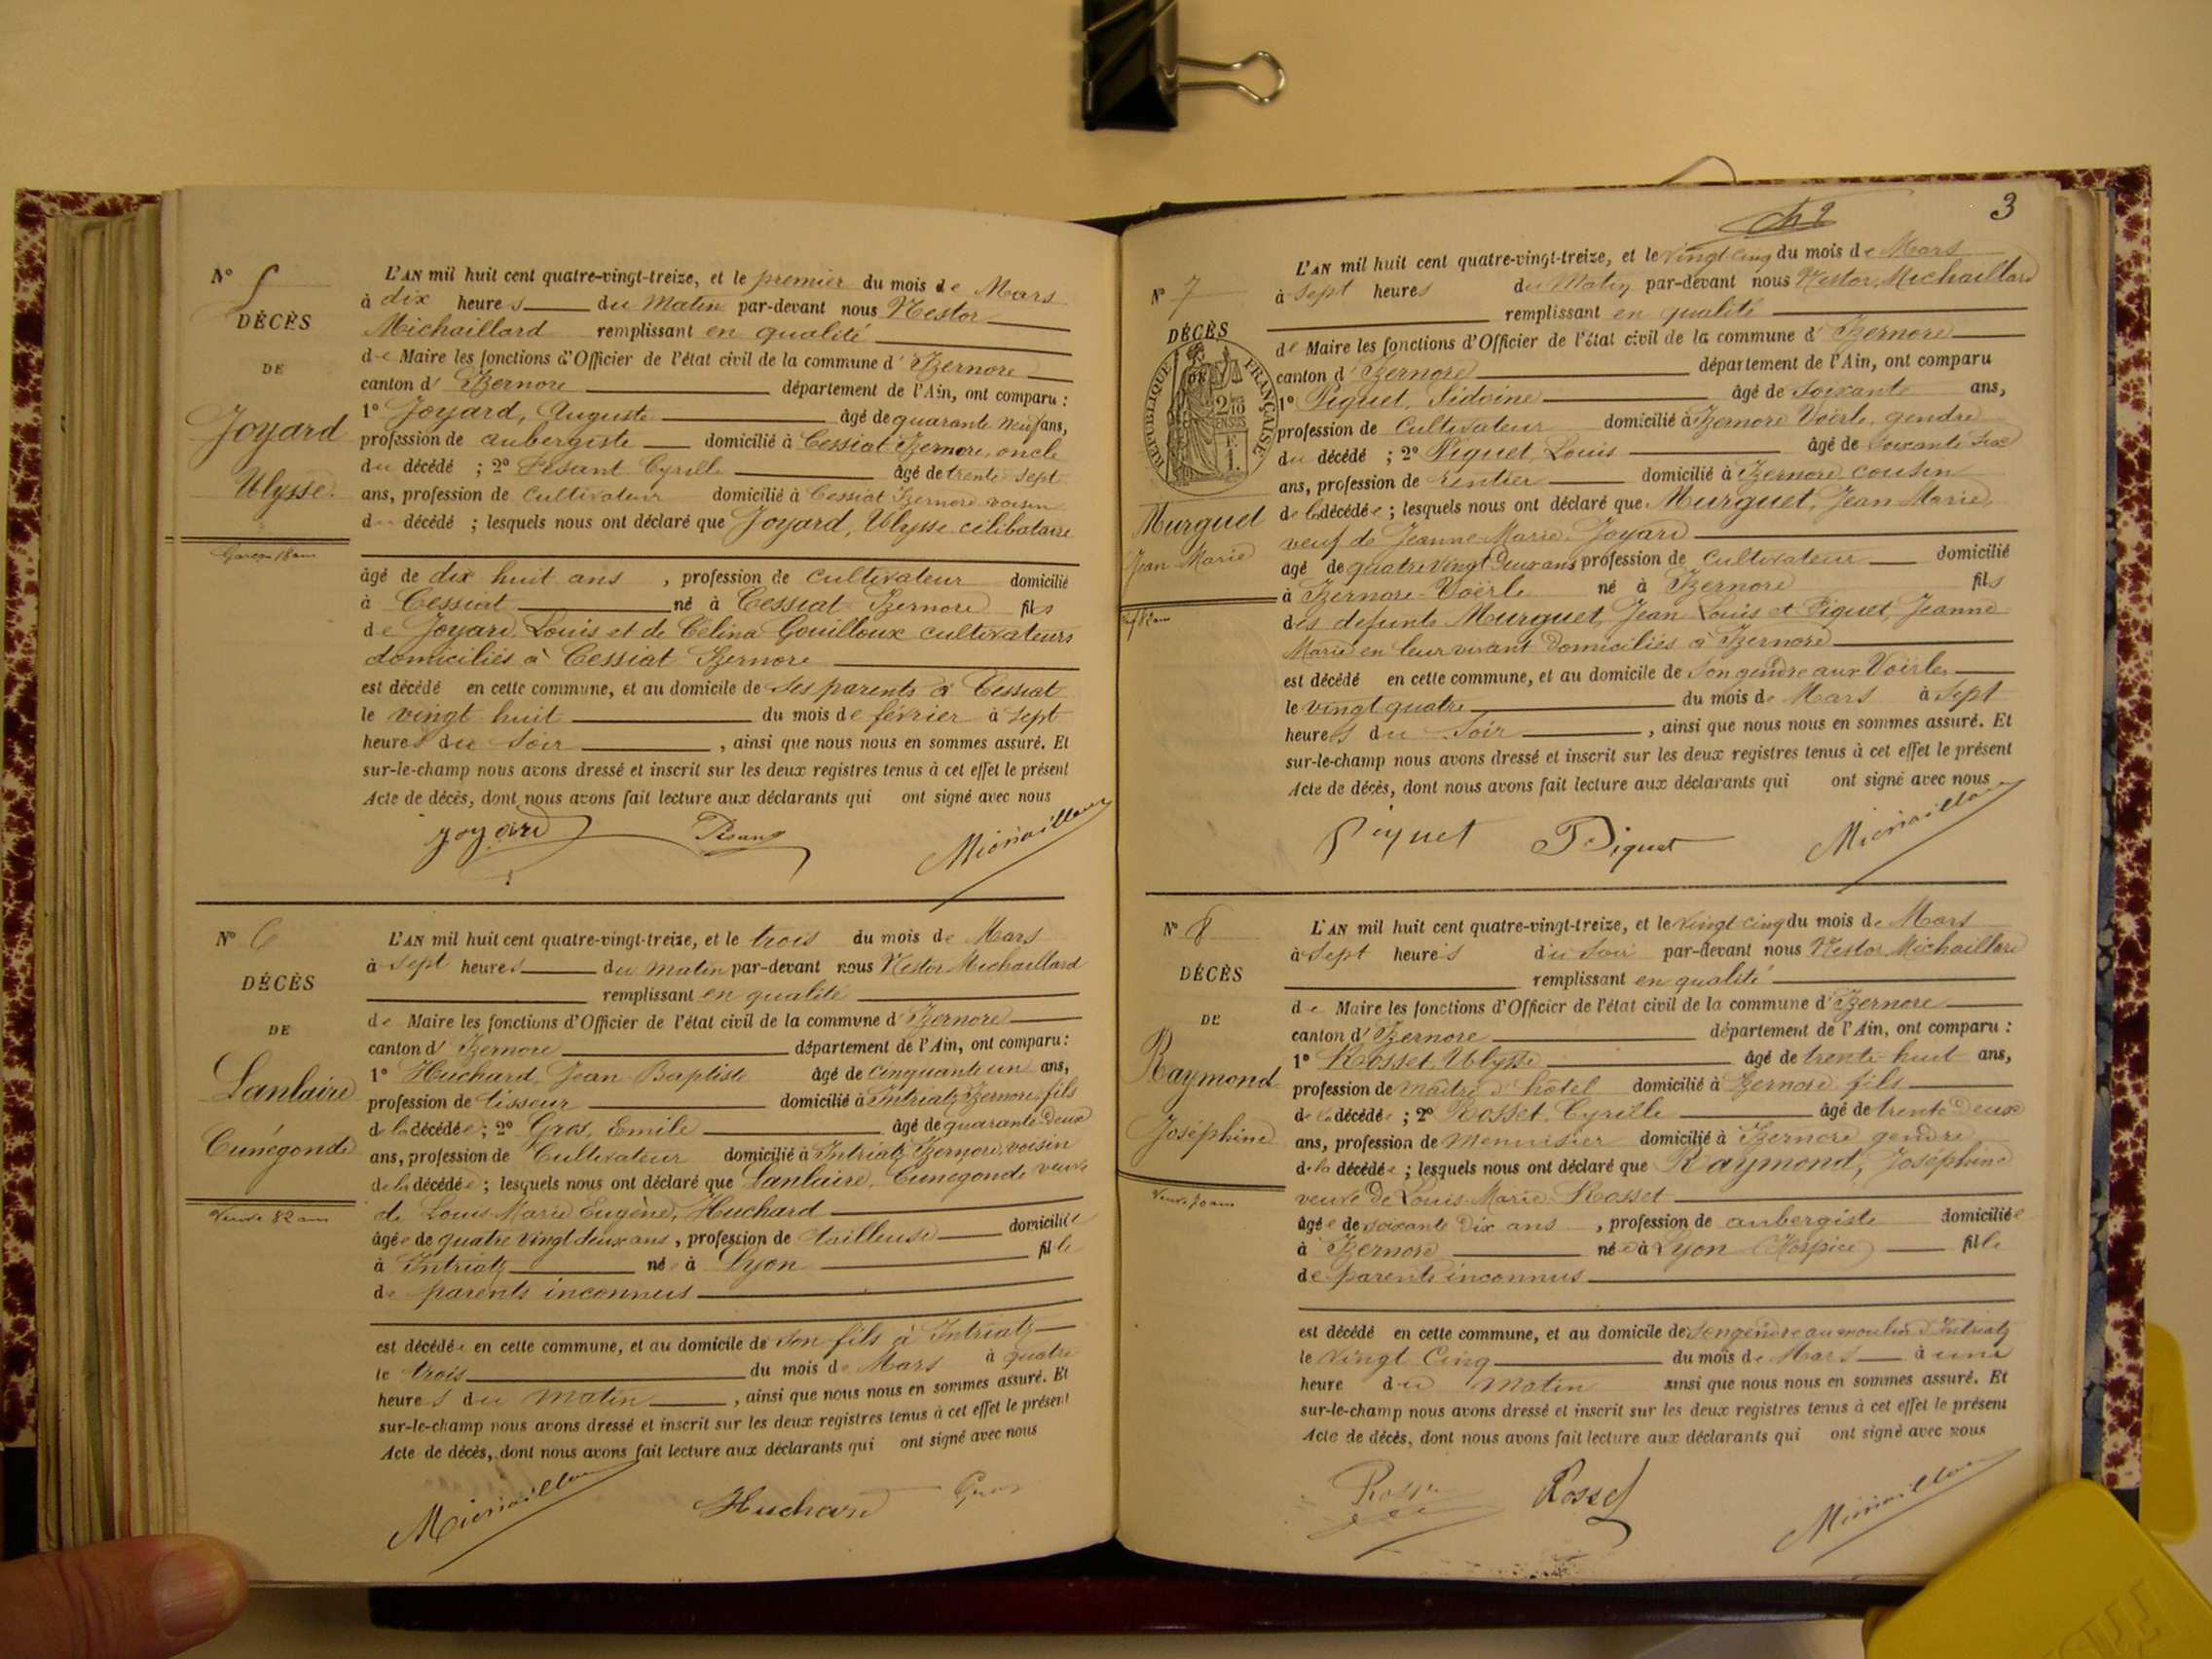 N° 5
DÉCÈS
DE
Joyard
Ulysse.
Garçon 18 ans
L'AN mil huit cent quatre-vingt-treize, et le premier du mois de Mars
à dix heures du Matin par-devant nous Nestor
Michaillard remplissant en qualité
de Maire les fonctions d'Officier de l'état civil de la commune d'Izernore
canton d'Izernore département de l'Ain, ont comparu :
1° Joyard, Auguste âgé de quarante neuf ans,
profession de aubergiste domicilié à Cessiat Izernore, oncle
du décédé ; 2° Pesant Cyrille âgé de trente sept
ans, profession de Cultivateur domicilié à Cessiat Izernore voisin
du décédé ; lesquels nous ont déclaré que Joyard, Ulysse célibataire
âgé de dix huit ans , profession de cultivateur domicilié
à Cessiat né à Cessiat Izernore fils
de Joyard Louis et de Célina Gouilloux cultivateurs
domiciliés à Cessiat Izernore
est décédé en cette commune, et au domicile de ses parents à Cessiat
le vingt huit du mois de février à sept
heures du soir , ainsi que nous nous en sommes assuré. Et
sur-le-champ nous avons dressé et inscrit sur les deux registres tenus à cet effet le présent
Acte de décès, dont nous avons fait lecture aux déclarants qui ont signé avec nous
Joyard Michaillard
N° 6
DÉCÈS
DE
Lanlaire
Cunégonde
Veuve 82 ans
L'AN mil huit cent quatre-vingt-treize, et le trois du mois de Mars
à sept heures du matin par-devant nous Nestor Michaillard
remplissant en qualité
de Maire les fonctions d'Officier de l'état civil de la commune d'Izernore
canton d'Izernore département de l'Ain, ont comparu :
1° Huchard, Jean Baptiste âgé de cinquante un ans,
profession de tisseur domicilié à Intriatz Izernore fils
de la décédée ; 2° Gros, Emile âgé de quarante deux
ans, profession de Cultivateur domicilié à Intriatz Izernore, voisin
de la décédée ; lesquels nous ont déclaré que Lanlaire, Cunégonde veuve
de Louis Marie Eugène, Huchard
âgée de quatre vingt deux ans, profession de tailleuse domiciliée
à Intriatz née à Lyon fille
de parents inconnus
est décédée en cette commune, et au domicile de son fils à Intriatz
le trois du mois de Mars à quatre
heures du matin , ainsi que nous nous en sommes assuré. Et
sur-le-champ nous avons dressé et inscrit sur les deux registres tenus à cet effet le présent
Acte de décès, dont nous avons fait lecture aux déclarants qui ont signé avec nous
Michaillard Huchard Gros
3
N° 7
DÉCÈS
DE
RÉPUBLIQUE FRANÇAISE
Murguet
Jean Marie
L'AN mil huit cent quatre-vingt-treize, et le vingt cinq du mois de Mars
à sept heures du Matin par-devant nous Nestor Michaillard
remplissant en qualité
de Maire les fonctions d'Officier de l'état civil de la commune d'Izernore
canton d'Izernore département de l'Ain, ont comparu
1° Piquet, Sidoine âgé de soixante ans,
profession de Cultivateur domicilié à Izernore Voërle, gendre
du décédé ; 2° Piquet, Louis âgé de soixante six
ans, profession de rentier domicilié à Izernore cousin
de la décédée ; lesquels nous ont déclaré que Murguet, Jean Marie,
veuf de Jeanne-Marie Joyard
âgé de quatre vingt deux ans profession de cultivateur domicilié
à Izernore Voërle né à Izernore fils
des défunts Murguet, Jean Louis et Piquet, Jeanne
Marie en leur vivant domiciliés à Izernore
est décédé en cette commune, et au domicile de son gendre aux Voërles
le vingt quatre du mois de Mars à sept
heures du soir , ainsi que nous nous en sommes assuré. Et
sur-le-champ nous avons dressé et inscrit sur les deux registres tenus à cet effet le présent
Acte de décès, dont nous avons fait lecture aux déclarants qui ont signé avec nous
Piquet Piquet Michaillard
N° 8
DÉCÈS
DE
Raymond
Joséphine
Veuve 70 ans
L'AN mil huit cent quatre-vingt-treize, et le vingt cinq du mois de Mars
à sept heures du soir par-devant nous Nestor Michaillard
remplissant en qualité
de Maire les fonctions d'Officier de l'état civil de la commune d'Izernore
canton d'Izernore département de l'Ain, ont comparu :
1° Rosset, Ulysse âgé de trente huit ans,
profession de maître d'hôtel domicilié à Izernore fils
de la décédée ; 2° Rosset, Cyrille âgé de trente deux
ans, profession de menuisier domicilié à Izernore gendre
de la décédée ; lesquels nous ont déclaré que Raymond, Joséphine
veuve de Louis-Marie Rosset
âgée de soixante dix ans , profession de aubergiste domiciliée
à Izernore née à Lyon (Hospice) fille
de parents inconnus
est décédé en cette commune, et au domicile de son gendre au moulin d'Intriatz
le vingt cinq du mois de Mars à une
heure du matin ainsi que nous nous en sommes assuré. Et
sur-le-champ nous avons dressé et inscrit sur les deux registres tenus à cet effet le présent
Acte de décès, dont nous avons fait lecture aux déclarants qui ont signé avec nous
Rosset Rosset Michaillard